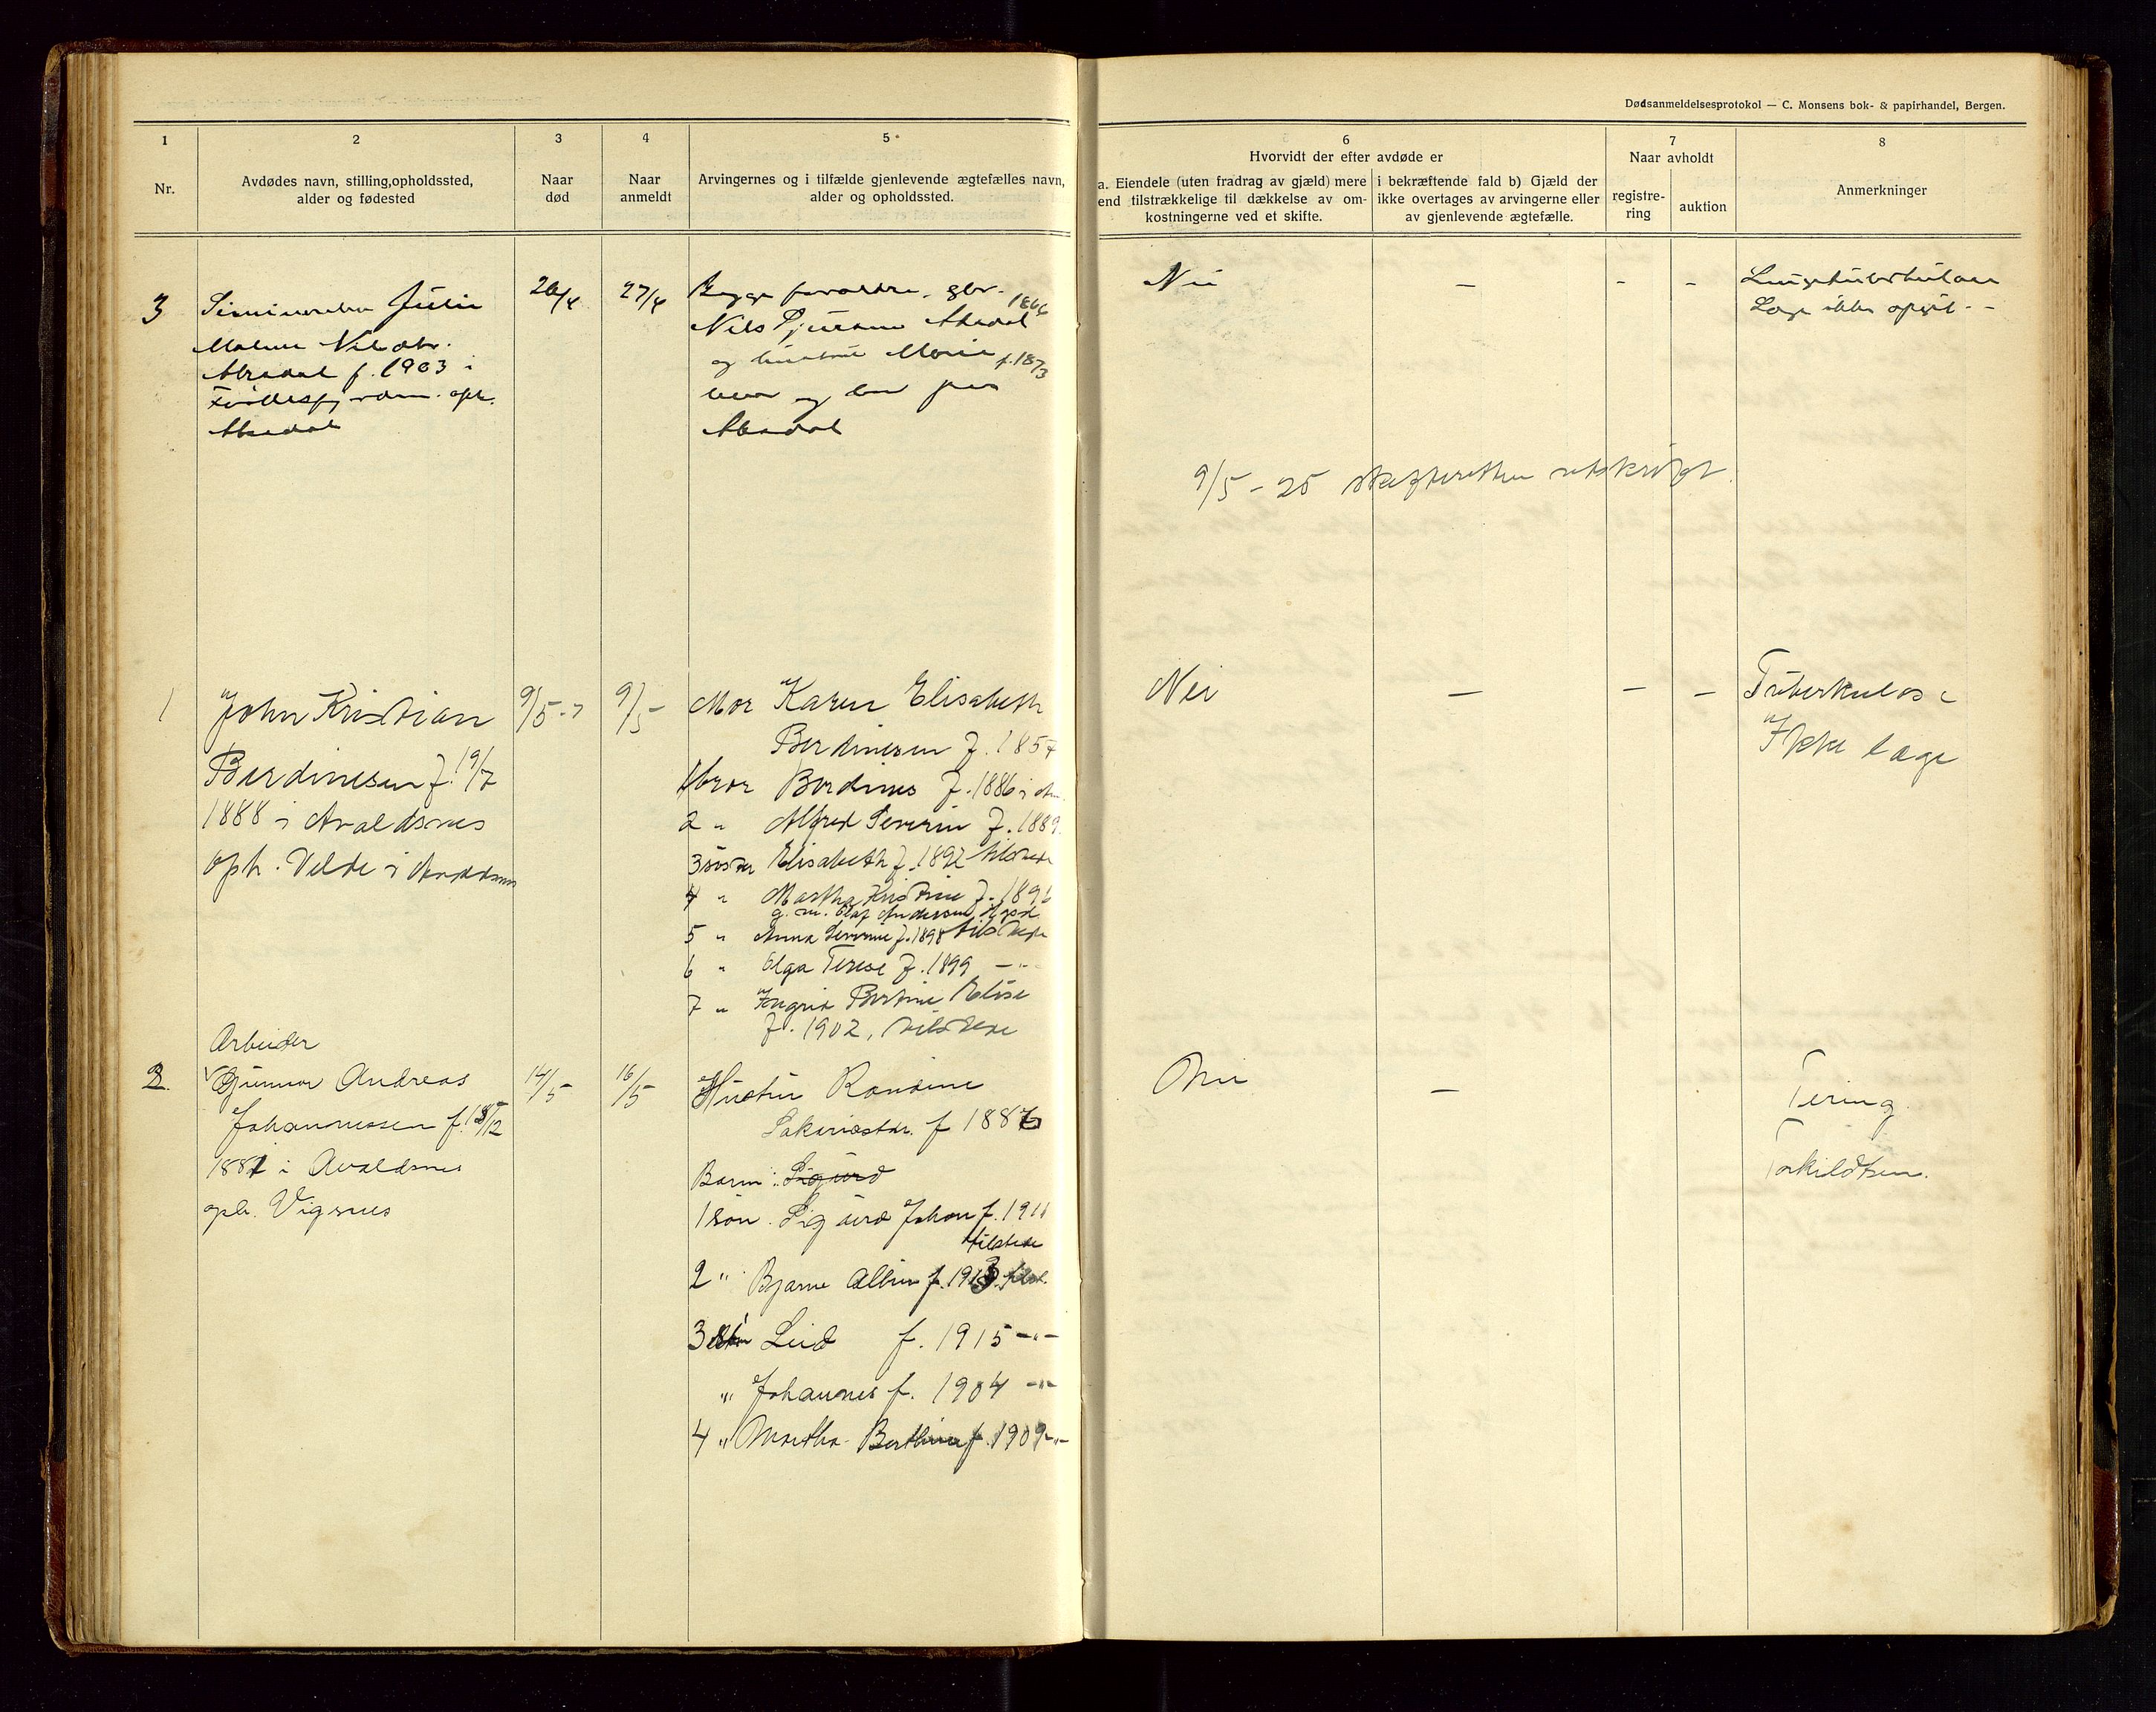 Dødsanmeldelsesprotokol — C. Monsens bok- & papirhandel, Bergen.
1
2
3
4
5
6
7
8
Nr.
Avdødes navn, stilling, opholdssted,
alder og fødested
Naar
død
Naar
anmeldt
Arvingernes og i tilfælde gjenlevende ægtefælles navn,
alder og opholdssted.
Hvorvidt der efter avdøde er
a. Eiendele (uten fradrag av gjæld) mere
end tilstrækkelige til dækkelse av om-
kostningerne ved et skifte.
i bekræftende fald b) Gjæld der
ikke overtages av arvingerne eller
av gjenlevende ægtefælle.
Naar avholdt
registre-
ring
auktion
Anmerkninger
3
Julie
Malene
f. 1903 i
oph.
26/4
27/4
Begge forældre, gbr. 1866
Nils
og hustru Marie f. 1873
Nei
—
-
-
Lungetuberkulose
Læge ikke
9/5 - 25 skifteretten utskrift
1
John Kristian
Berdinesen f. 19/7
1888 i Avaldsnes
oph. Velde i Avaldsnes
9/5
9/5
Mor Karen Elisabeth
Berdinesen f. 1857
1 bror Berdines f. 1886 i
2 " Alfred Severin f. 1889
3 søster Elisabeth f. 1892 tilstede
4 " Martha Kristine f. 189
g. m. Olaf Andersen
5 " Anna Severine f. 1898 tilstede
6 " Olga Terese f. 1899 — " —
7 " Ingrid Bertine Elise
f. 1902, tilstede
Nei
—
—
—
Tuberkulose
Ikke læge
2.
Arbeider
Gunnar Andreas
Johannessen f. 18/12
1881 i Avaldsnes
oph. Vigsnes
14/5
16/5
Hustru Randine
Sakariasdtr. f 1886
Barn: Sigurd
1 søn. Sigurd Johan f. 1911
tilstede
2 " Bjarne Albin f. 1913 tilst.
3 Leid f. 1915 — " —
" Johannes f. 1904 — " —
4 " Martha Berthine f. 1909 — " —
Nei
—
Tering.
Torkildsen.